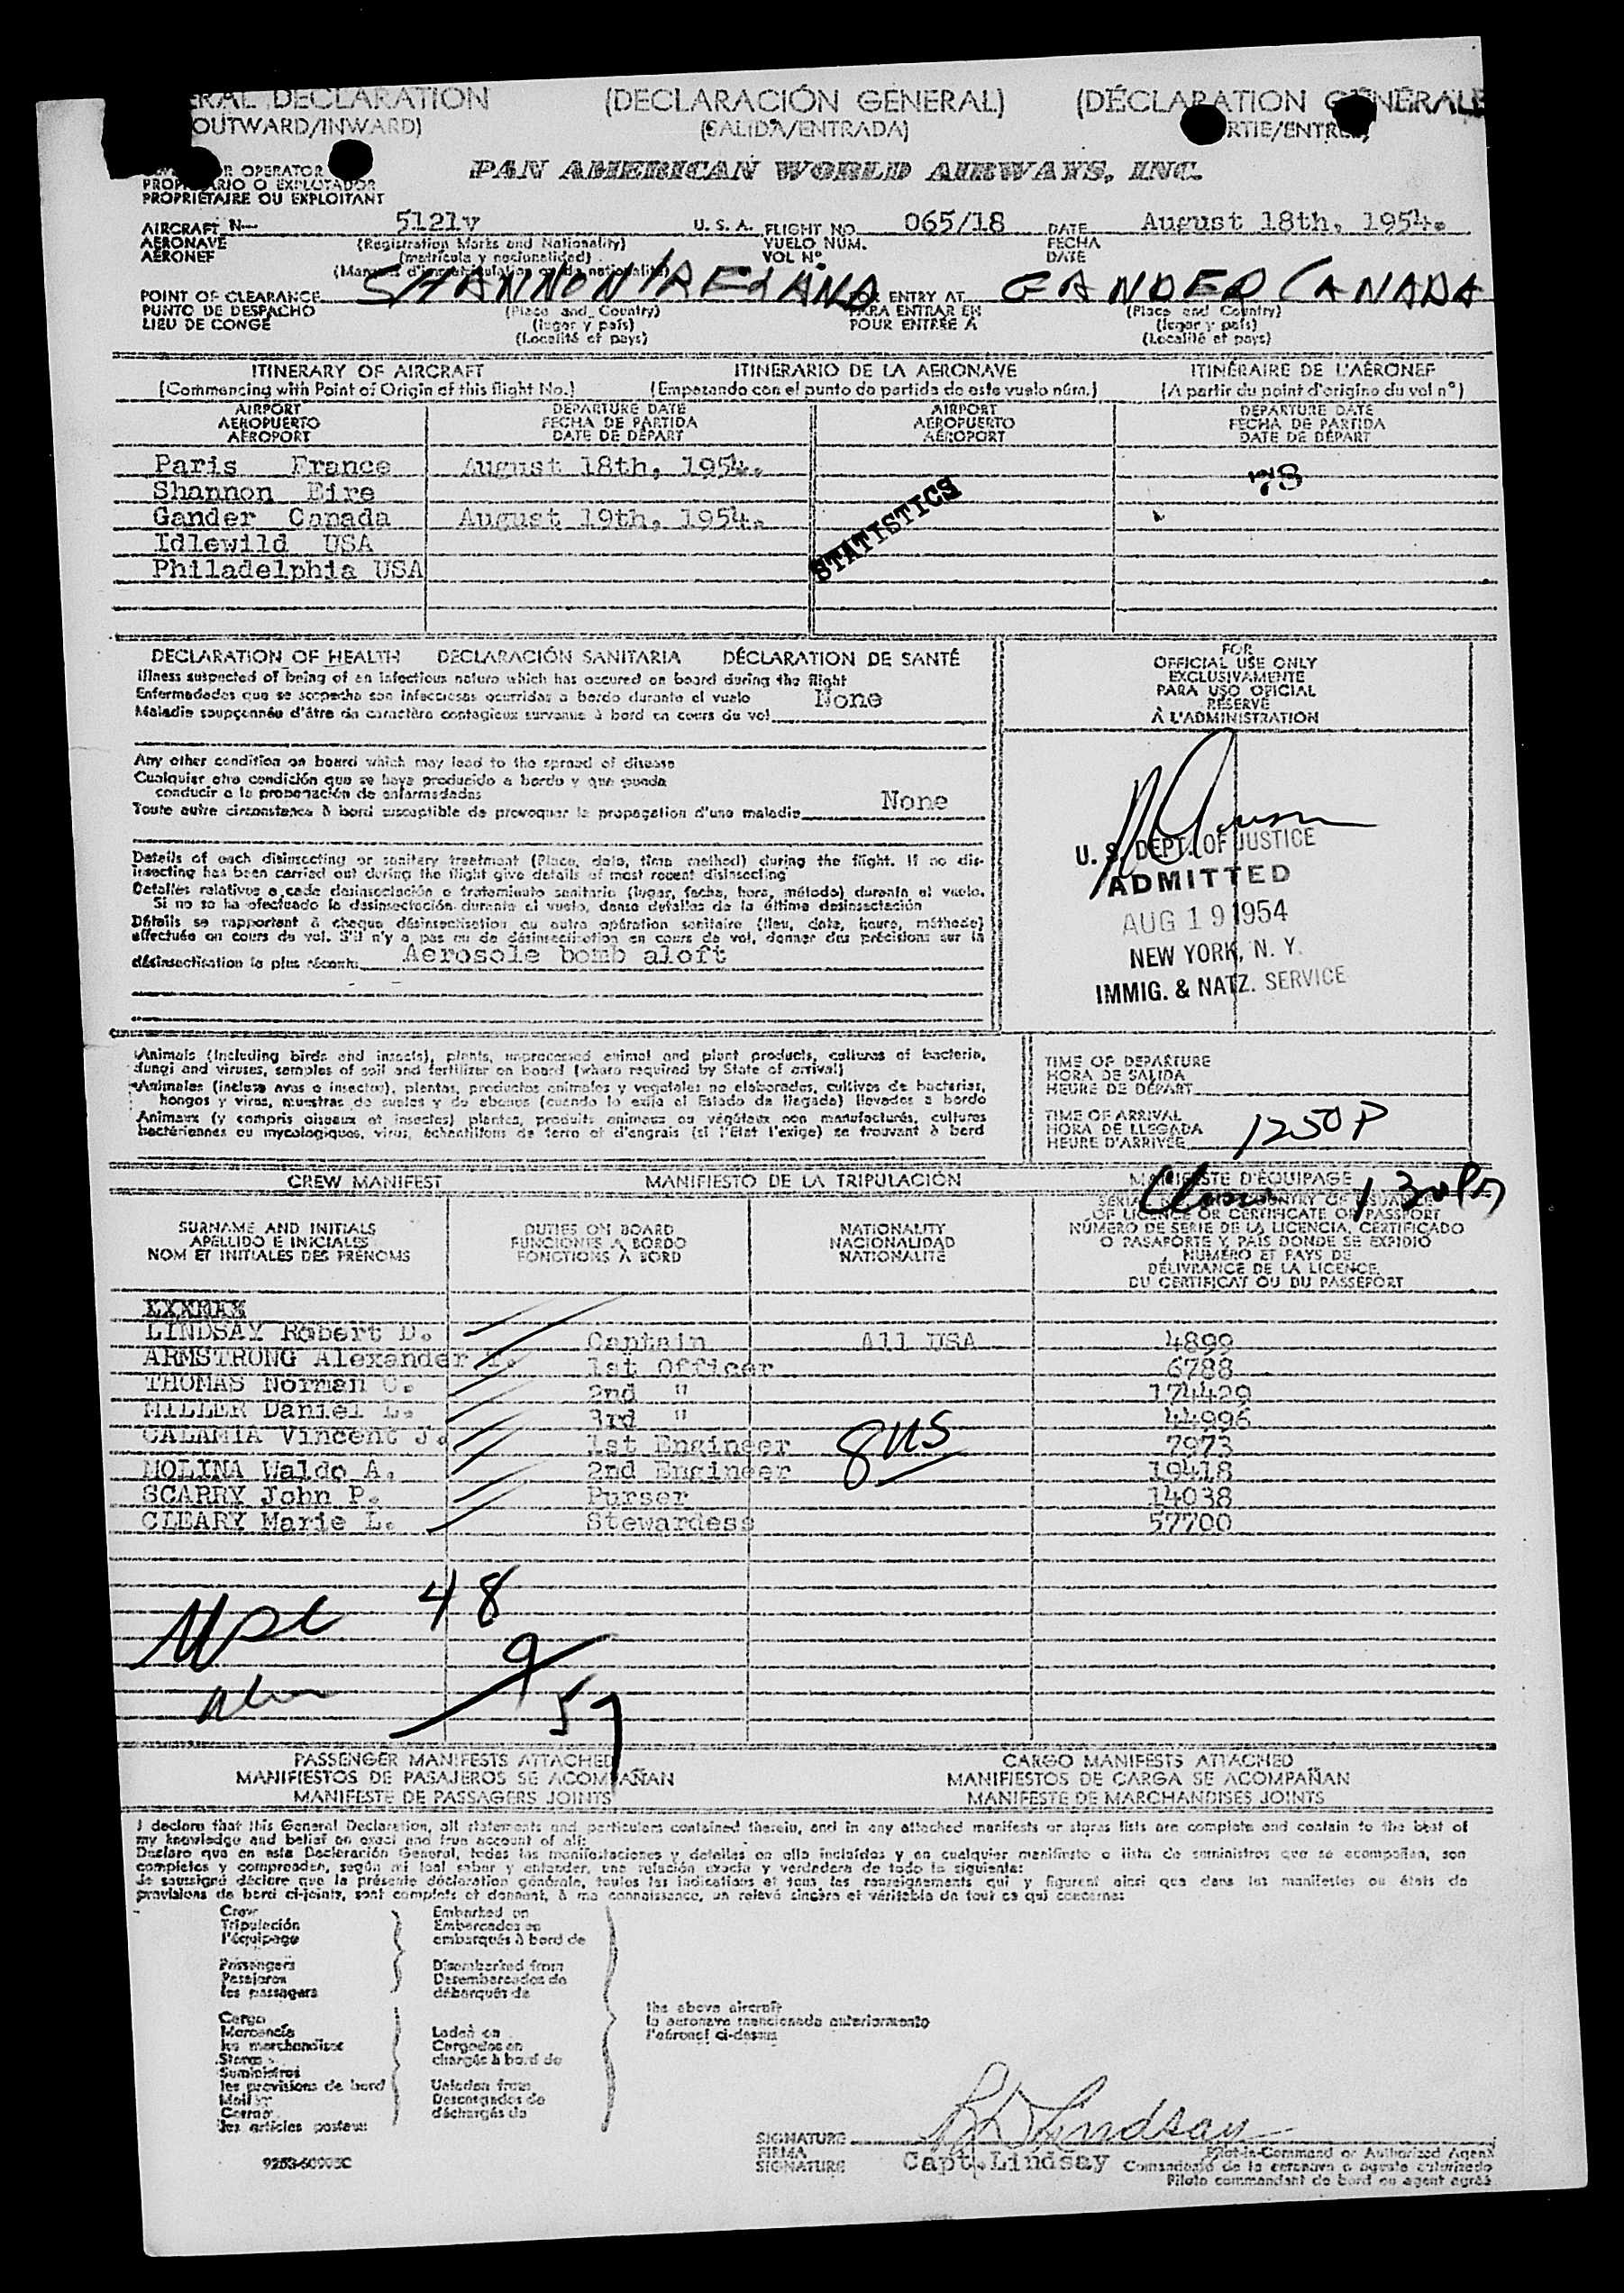 ERAL DECLARATION (DECLARACIÓN GENERAL) (DÉCLARATION GÉNÉRALE
OUTWARD/INWARD) (SALIDA/ENTRADA) RTIE/ENTRÉE)
R OPERATOR
PROPIETARIO O EXPLOTADOR
PROPRIÉTAIRE OU EXPLOITANT
PAN AMERICAN WORLD AIRWAYS, INC.
AIRCRAFT N— 5121v U. S. A. FLIGHT NO. 065/18 DATE August 18th, 1954.
AERONAVE (Registration Marks and Nationality) VUELO NÚM. FECHA
AÉRONEF (matrícula y nacionalidad) VOL Nº DATE
(Marques d'immatriculation ou de nationalité)
POINT OF CLEARANCE SHANNON IRELAND FOR ENTRY AT GANDER CANADA
PUNTO DE DESPACHO (Place and Country) PARA ENTRAR EN (Place and Country)
LIEU DE CONGÉ (lugar y país) POUR ENTRÉE A (lugar y país)
(Localité et pays) (Localité et pays)
ITINERARY OF AIRCRAFT ITINERARIO DE LA AERONAVE ITINÉRAIRE DE L'AÉRONEF
(Commencing with Point of Origin of this flight No.) (Empezando con el punto de partida de este vuelo núm.) (A partir du point d'origine du vol nº)
AIRPORT DEPARTURE DATE AIRPORT DEPARTURE DATE
AEROPUERTO FECHA DE PARTIDA AEROPUERTO FECHA DE PARTIDA
AÉROPORT DATE DE DÉPART AÉROPORT DATE DE DÉPART
Paris France August 18th, 1954.
78
Shannon Eire
Gander Canada August 19th, 1954.
STATISTICS
Idlewild USA
Philadelphia USA
DECLARATION OF HEALTH DECLARACIÓN SANITARIA DÉCLARATION DE SANTÉ
Illness suspected of being of an infectious nature which has occured on board during the flight
Enfermedades que se sospecha son infecciosas ocurridas a bordo durante el vuelo None
Maladie soupçonnée d'être de caractère contagieux survenue à bord en cours de vol
Any other condition on board which may lead to the spread of disease
Cualquier otra condición que se haya producido a bordo y que pueda
conducir a la propagación de enfermedades
Toute autre circonstance à bord susceptible de provoquer la propagation d'une maladie None
Details of each disinsecting or sanitary treatment (Place, date, time method) during the flight. If no dis-
insecting has been carried out during the flight give details of most recent disinsecting
Detalles relativos a cada desinsectación o tratamiento sanitario (lugar, fecha, hora, método) durante el vuelo.
Si no se ha efectuado la desinsectación durante el vuelo, danse detalles de la última desinsectación
Détails se rapportant à chaque désinsectisation ou autre opération sanitaire (lieu, date, heure, méthode)
effectuée en cours de vol. S'il n'y a pas eu de désinsectisation en cours de vol, donner des précisions sur la
désinsectisation la plus récente Aerosole bomb aloft
FOR
OFFICIAL USE ONLY
EXCLUSIVAMENTE
PARA USO OFICIAL
RÉSERVÉ
À L'ADMINISTRATION
U. S. DEPT. OF JUSTICE
ADMITTED
AUG 19 1954
NEW YORK, N. Y.
IMMIG. & NATZ. SERVICE
Animals (Including birds and insects), plants, unprocessed animal and plant products, cultures of bacteria,
fungi and viruses, samples of soil and fertilizer on board (where required by State of arrival)
Animales (incluso aves o insectos), plantas, productos animales y vegetales no elaborados, cultivos de bacterias,
hongos y virus, muestras de suelos y de abonos (cuando lo exija el Estado de llegada) llevados a bordo
Animaux (y compris oiseaux et insectes) plantes, produits animaux ou végétaux non manufacturés, cultures
bactériennes ou mycologiques, virus, échantillons de terre et d'engrais (si l'État l'exige) se trouvant à bord
TIME OF DEPARTURE
HORA DE SALIDA
HEURE DE DÉPART
TIME OF ARRIVAL
HORA DE LLEGADA
HEURE D'ARRIVÉE 1250P
CREW MANIFEST MANIFIESTO DE LA TRIPULACIÓN MANIFESTE D'ÉQUIPAGE
SURNAME AND INITIALS DUTIES ON BOARD NATIONALITY
APELLIDO E INICIALES FUNCIONES A BORDO NACIONALIDAD
NOM ET INITIALES DES PRÉNOMS FONCTIONS À BORD NATIONALITÉ
OF LICENCE OR CERTIFICATE OR PASSPORT
NÚMERO DE SERIE DE LA LICENCIA, CERTIFICADO
O PASAPORTE Y PAÍS DONDE SE EXPIDIÓ
NUMÉRO ET PAYS DE
DÉLIVRANCE DE LA LICENCE,
DU CERTIFICAT OU DU PASSEPORT
LINDSAY Robert D. Captain All USA 4899
ARMSTRONG Alexander 1st Officer 6788
THOMAS Norman C. 2nd " 174429
MILLER Daniel L. 3rd " 44996
CALAMIA Vincent J. 1st Engineer 7973
8 US
MOLINA Waldo A. 2nd Engineer 19418
SCARRY John P. Purser 14038
CLEARY Marie L. Stewardess 57700
48
9
57
PASSENGER MANIFESTS ATTACHED CARGO MANIFESTS ATTACHED
MANIFIESTOS DE PASAJEROS SE ACOMPAÑAN MANIFIESTOS DE CARGA SE ACOMPAÑAN
MANIFESTE DE PASSAGERS JOINTS MANIFESTE DE MARCHANDISES JOINTS
I declare that this General Declaration, all statements and particulars contained therein, and in any attached manifests or stores lists are complete and contain to the best of
my knowledge and belief an exact and true account of all:
Declaro que en esta Declaración General, todas las manifestaciones y detalles en ella incluídos y en cualquier manifiesto o lista de suministros que se acompañan, son
completos y comprenden, según mi leal saber y entender, una relación exacta y verdadera de todo lo siguiente:
Je soussigné déclare que la présente déclaration générale, toutes les indications et tous les renseignements qui y figurent ainsi que dans les manifestes ou états de
provisions de bord ci-joints, sont complets et donnent, à ma connaissance, un relevé sincère et véritable de tout ce qui concerne:
Crew Embarked on
Tripulación Embarcados en
l'équipage embarqués à bord de
Passengers Disembarked from
Pasajeros Desembarcados de
les passagers débarqués de
the above aircraft
la aeronave mencionada anteriormente
l'aéronef ci-dessus
Cargo
Mercancía Laden on
les marchandises Cargados en
Stores chargés à bord de
Suministros
les provisions de bord Unladen from
Mail Descargados de
Correo déchargés de
les articles postaux
SIGNATURE R D Lindsay
FIRMA Pilot-in-Command or Authorized Agent
SIGNATURE Capt. Lindsay Comandante de la aeronave o agente autorizado
Pilote commandant de bord ou agent agréé